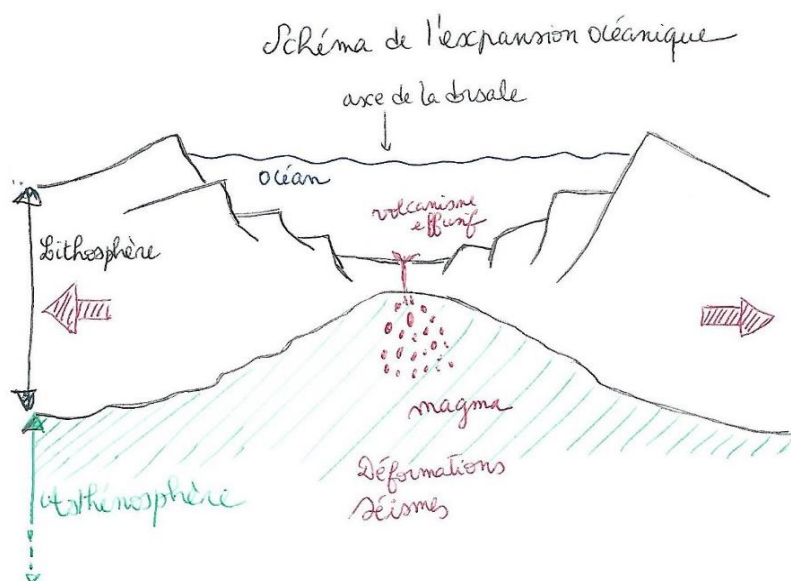 Schéma de l'expansion océanique
axe de la dorsale
océan
volcanisme
effusif
Lithosphère
magma
Déformations
Séismes
Asthénosphère